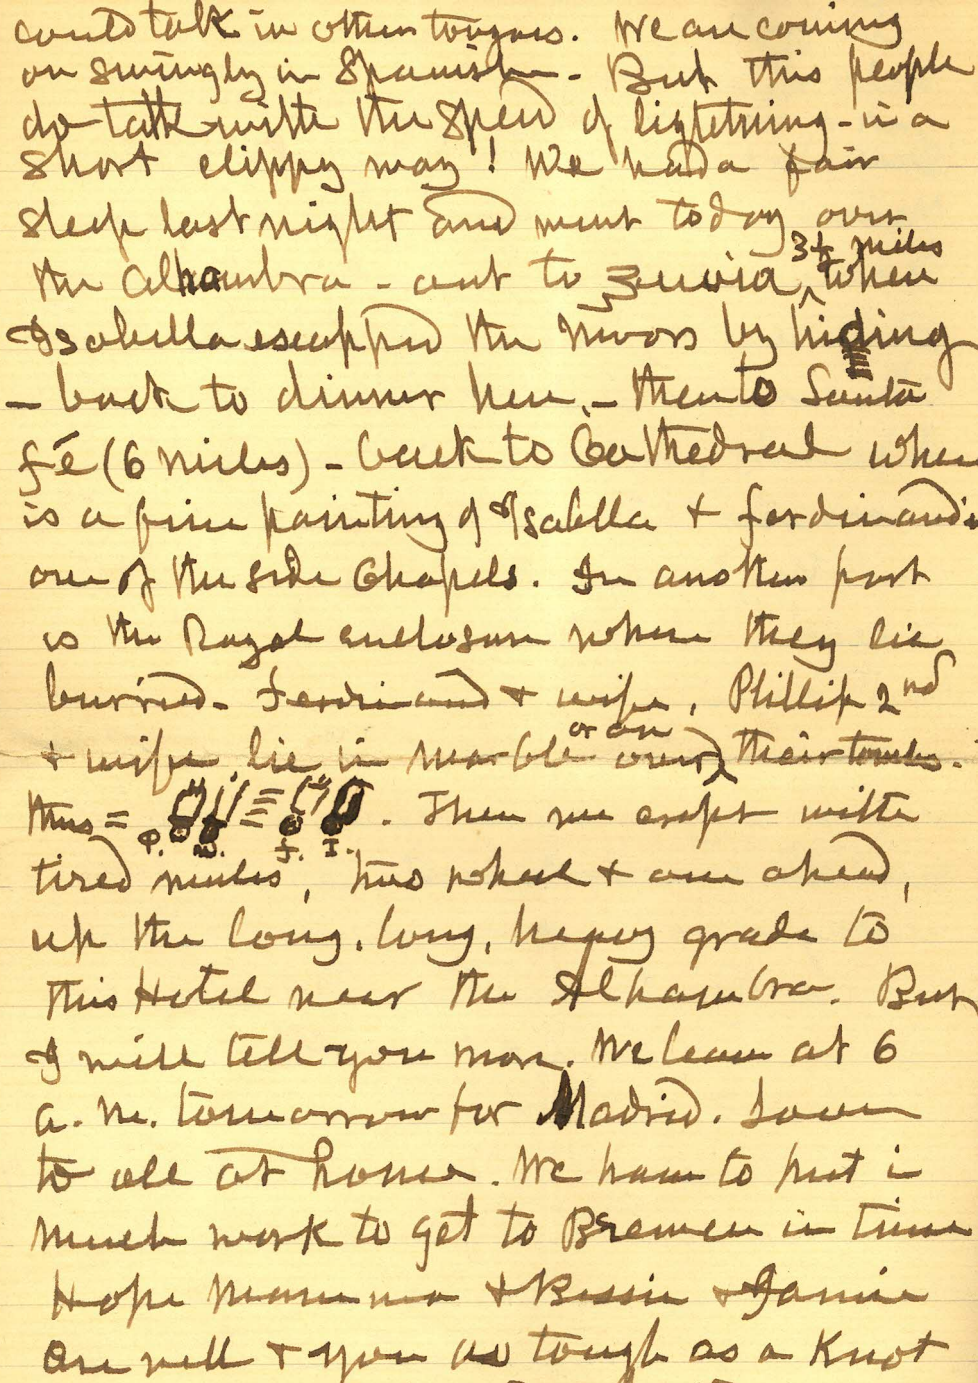 could talk in other tongues. We are coming
on swingly in Spanish - But this people
do talk with the speed of lightning - in a
short clippy way! We had a fair
sleep last night and went today over
the Alhambra - out to Zuvia, 3½ miles ^ when
Isabella escapped the Moors by hiding
- back to dinner here, - then to Santa
fé (6 miles) - back to Cathedral where
is a fine painting of Isabella + ferdinand in
one of the side Chapels. In another part
is the Royal enclosure where they lie
burried - Ferdinand + wife, Phillip 2nd
+ wife, lie in marble or on over their tombs.
thus = P. W. = F. I. . Then we crept with
tired mules, two wheel + one ahead,
up the long, long, heavy grade to
this Hotel near the Alhambra. But
I will tell you more. We leave at 6
a.m. tomorrow for Madrid. Love
to all at home. We have to put in
much work to get to Bremen in time
Hope Mamma + Bessie + Jamie
are well + you as tough as a Knot